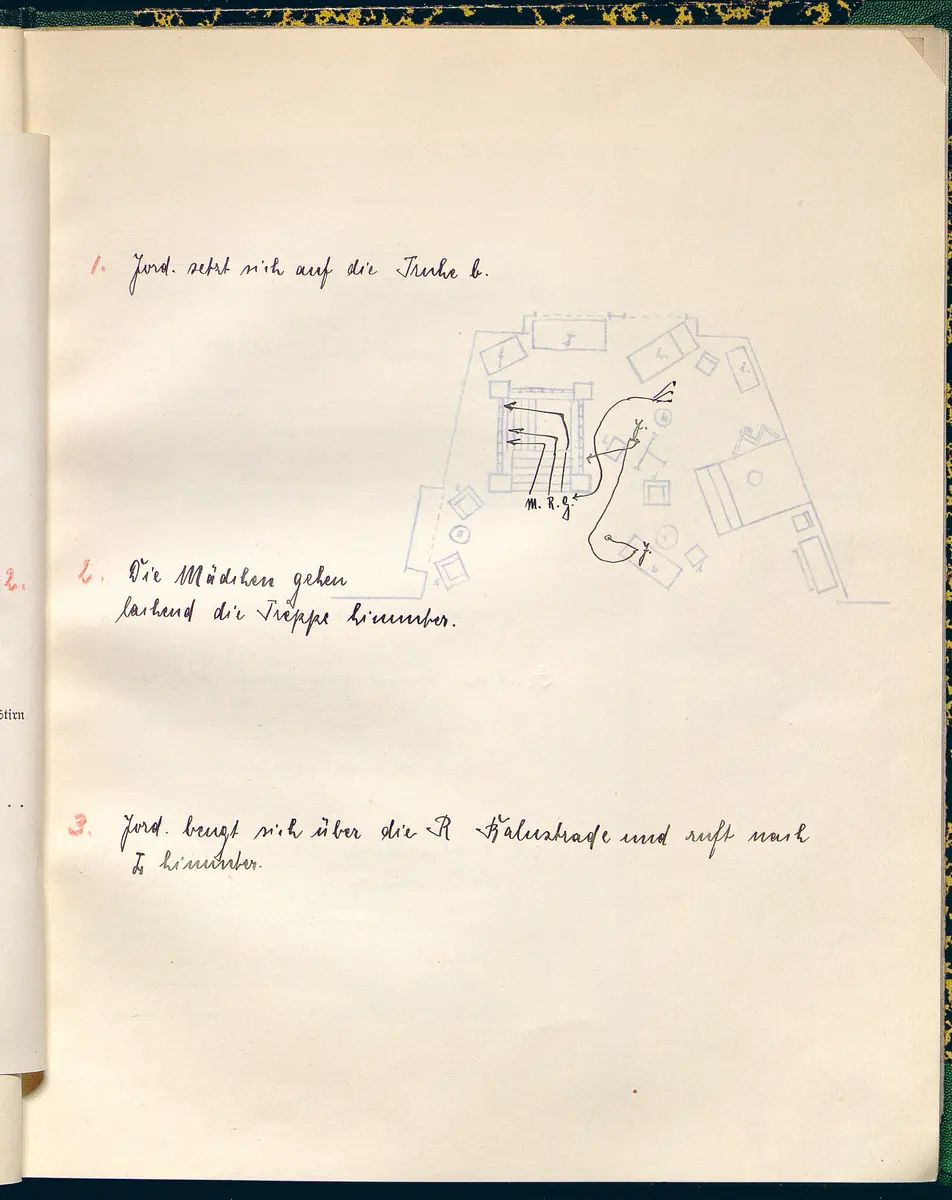 1. Jord. setzt sich auf die Truhe b.
f
g
h.
i.
k
J.
M. R. G.
J.
b
2.
2. Die Mädchen gehen
lachend die Treppe hinunter.
Stirn
. .
3. Jord. beugt sich über die R Balustrade und ruft nach
L hinunter.